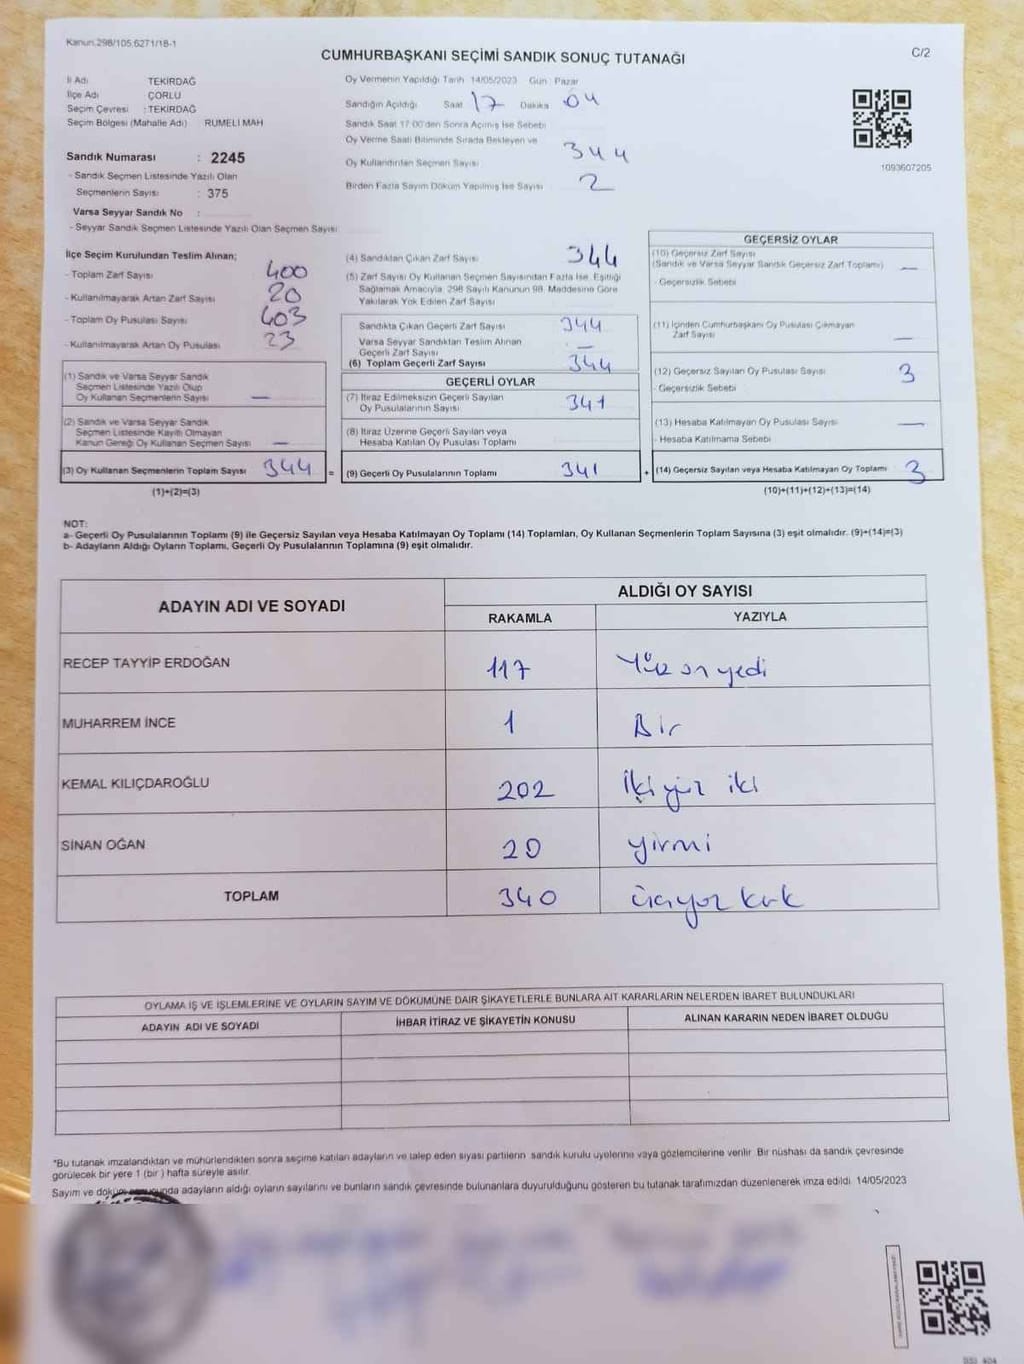 Kanun.298/105.6271/18-1
CUMHURBAŞKANI SEÇİMİ SANDIK SONUÇ TUTANAĞI
C/2
İl Adı TEKİRDAĞ
İlçe Adı ÇORLU
Seçim Çevresi : TEKİRDAĞ
Seçim Bölgesi (Mahalle Adı) RUMELİ MAH
Sandık Numarası : 2245
- Sandık Seçmen Listesinde Yazılı Olan
Seçmenlerin Sayısı : 375
Varsa Seyyar Sandık No :
- Seyyar Sandık Seçmen Listesinde Yazılı Olan Seçmen Sayısı
Oy Vermenin Yapıldığı Tarih 14/05/2023 Gün Pazar
Sandığın Açıldığı Saat 17 Dakika 04
Sandık Saat 17:00'den Sonra Açılmış İse Sebebi
Oy Verme Saati Bitiminde Sırada Bekleyen ve
Oy Kullandırılan Seçmen Sayısı 344
Birden Fazla Sayım Döküm Yapılmış İse Sayısı 2
1093607205
İlçe Seçim Kurulundan Teslim Alınan;
- Toplam Zarf Sayısı 400
- Kullanılmayarak Artan Zarf Sayısı 20
- Toplam Oy Pusulası Sayısı 403
- Kullanılmayarak Artan Oy Pusulası 23
(1) Sandık ve Varsa Seyyar Sandık
Seçmen Listesinde Yazılı Olup
Oy Kullanan Seçmenlerin Sayısı —
(2) Sandık ve Varsa Seyyar Sandık
Seçmen Listesinde Kayıtlı Olmayan
Kanun Gereği Oy Kullanan Seçmen Sayısı —
(3) Oy Kullanan Seçmenlerin Toplam Sayısı 344 =
(1)+(2)=(3)
(4) Sandıktan Çıkan Zarf Sayısı 344
(5) Zarf Sayısı Oy Kullanan Seçmen Sayısından Fazla İse, Eşitliği
Sağlamak Amacıyla, 298 Sayılı Kanunun 98. Maddesine Göre
Yakılarak Yok Edilen Zarf Sayısı
Sandıkta Çıkan Geçerli Zarf Sayısı 344
Varsa Seyyar Sandıktan Teslim Alınan
Geçerli Zarf Sayısı —
(6) Toplam Geçerli Zarf Sayısı 344
GEÇERLİ OYLAR
(7) İtiraz Edilmeksizin Geçerli Sayılan
Oy Pusulalarının Sayısı 341
(8) İtiraz Üzerine Geçerli Sayılan veya
Hesaba Katılan Oy Pusulası Toplamı
(9) Geçerli Oy Pusulalarının Toplamı 341 +
GEÇERSİZ OYLAR
(10) Geçersiz Zarf Sayısı
(Sandık ve Varsa Seyyar Sandık Geçersiz Zarf Toplamı) —
- Geçersizlik Sebebi
(11) İçinden Cumhurbaşkanı Oy Pusulası Çıkmayan
Zarf Sayısı —
(12) Geçersiz Sayılan Oy Pusulası Sayısı 3
- Geçersizlik Sebebi
(13) Hesaba Katılmayan Oy Pusulası Sayısı —
- Hesaba Katılmama Sebebi
(14) Geçersiz Sayılan veya Hesaba Katılmayan Oy Toplamı 3
(10)+(11)+(12)+(13)=(14)
NOT:
a- Geçerli Oy Pusulalarının Toplamı (9) ile Geçersiz Sayılan veya Hesaba Katılmayan Oy Toplamı (14) Toplamları, Oy Kullanan Seçmenlerin Toplam Sayısına (3) eşit olmalıdır. (9)+(14)=(3)
b- Adayların Aldığı Oyların Toplamı, Geçerli Oy Pusulalarının Toplamına (9) eşit olmalıdır.
ADAYIN ADI VE SOYADI
ALDIĞI OY SAYISI
RAKAMLA YAZIYLA
RECEP TAYYİP ERDOĞAN 117 Yüz on yedi
MUHARREM İNCE 1 Bir
KEMAL KILIÇDAROĞLU 202 İki yüz iki
SİNAN OĞAN 20 yirmi
TOPLAM 340 üçyüz kırk
OYLAMA İŞ VE İŞLEMLERİNE VE OYLARIN SAYIM VE DÖKÜMÜNE DAİR ŞİKAYETLERLE BUNLARA AİT KARARLARIN NELERDEN İBARET BULUNDUKLARI
ADAYIN ADI VE SOYADI İHBAR İTİRAZ VE ŞİKAYETİN KONUSU ALINAN KARARIN NEDEN İBARET OLDUĞU
*Bu tutanak imzalandıktan ve mühürlendikten sonra seçime katılan adayların ve talep eden siyasi partilerin sandık kurulu üyelerine veya gözlemcilerine verilir. Bir nüshası da sandık çevresinde
görülecek bir yere 1 (bir) hafta süreyle asılır.
Sayım ve döküm adayların aldığı oyların sayılarını ve bunların sandık çevresinde bulunanlara duyurulduğunu gösteren bu tutanak tarafımızdan düzenlenerek imza edildi. 14/05/2023